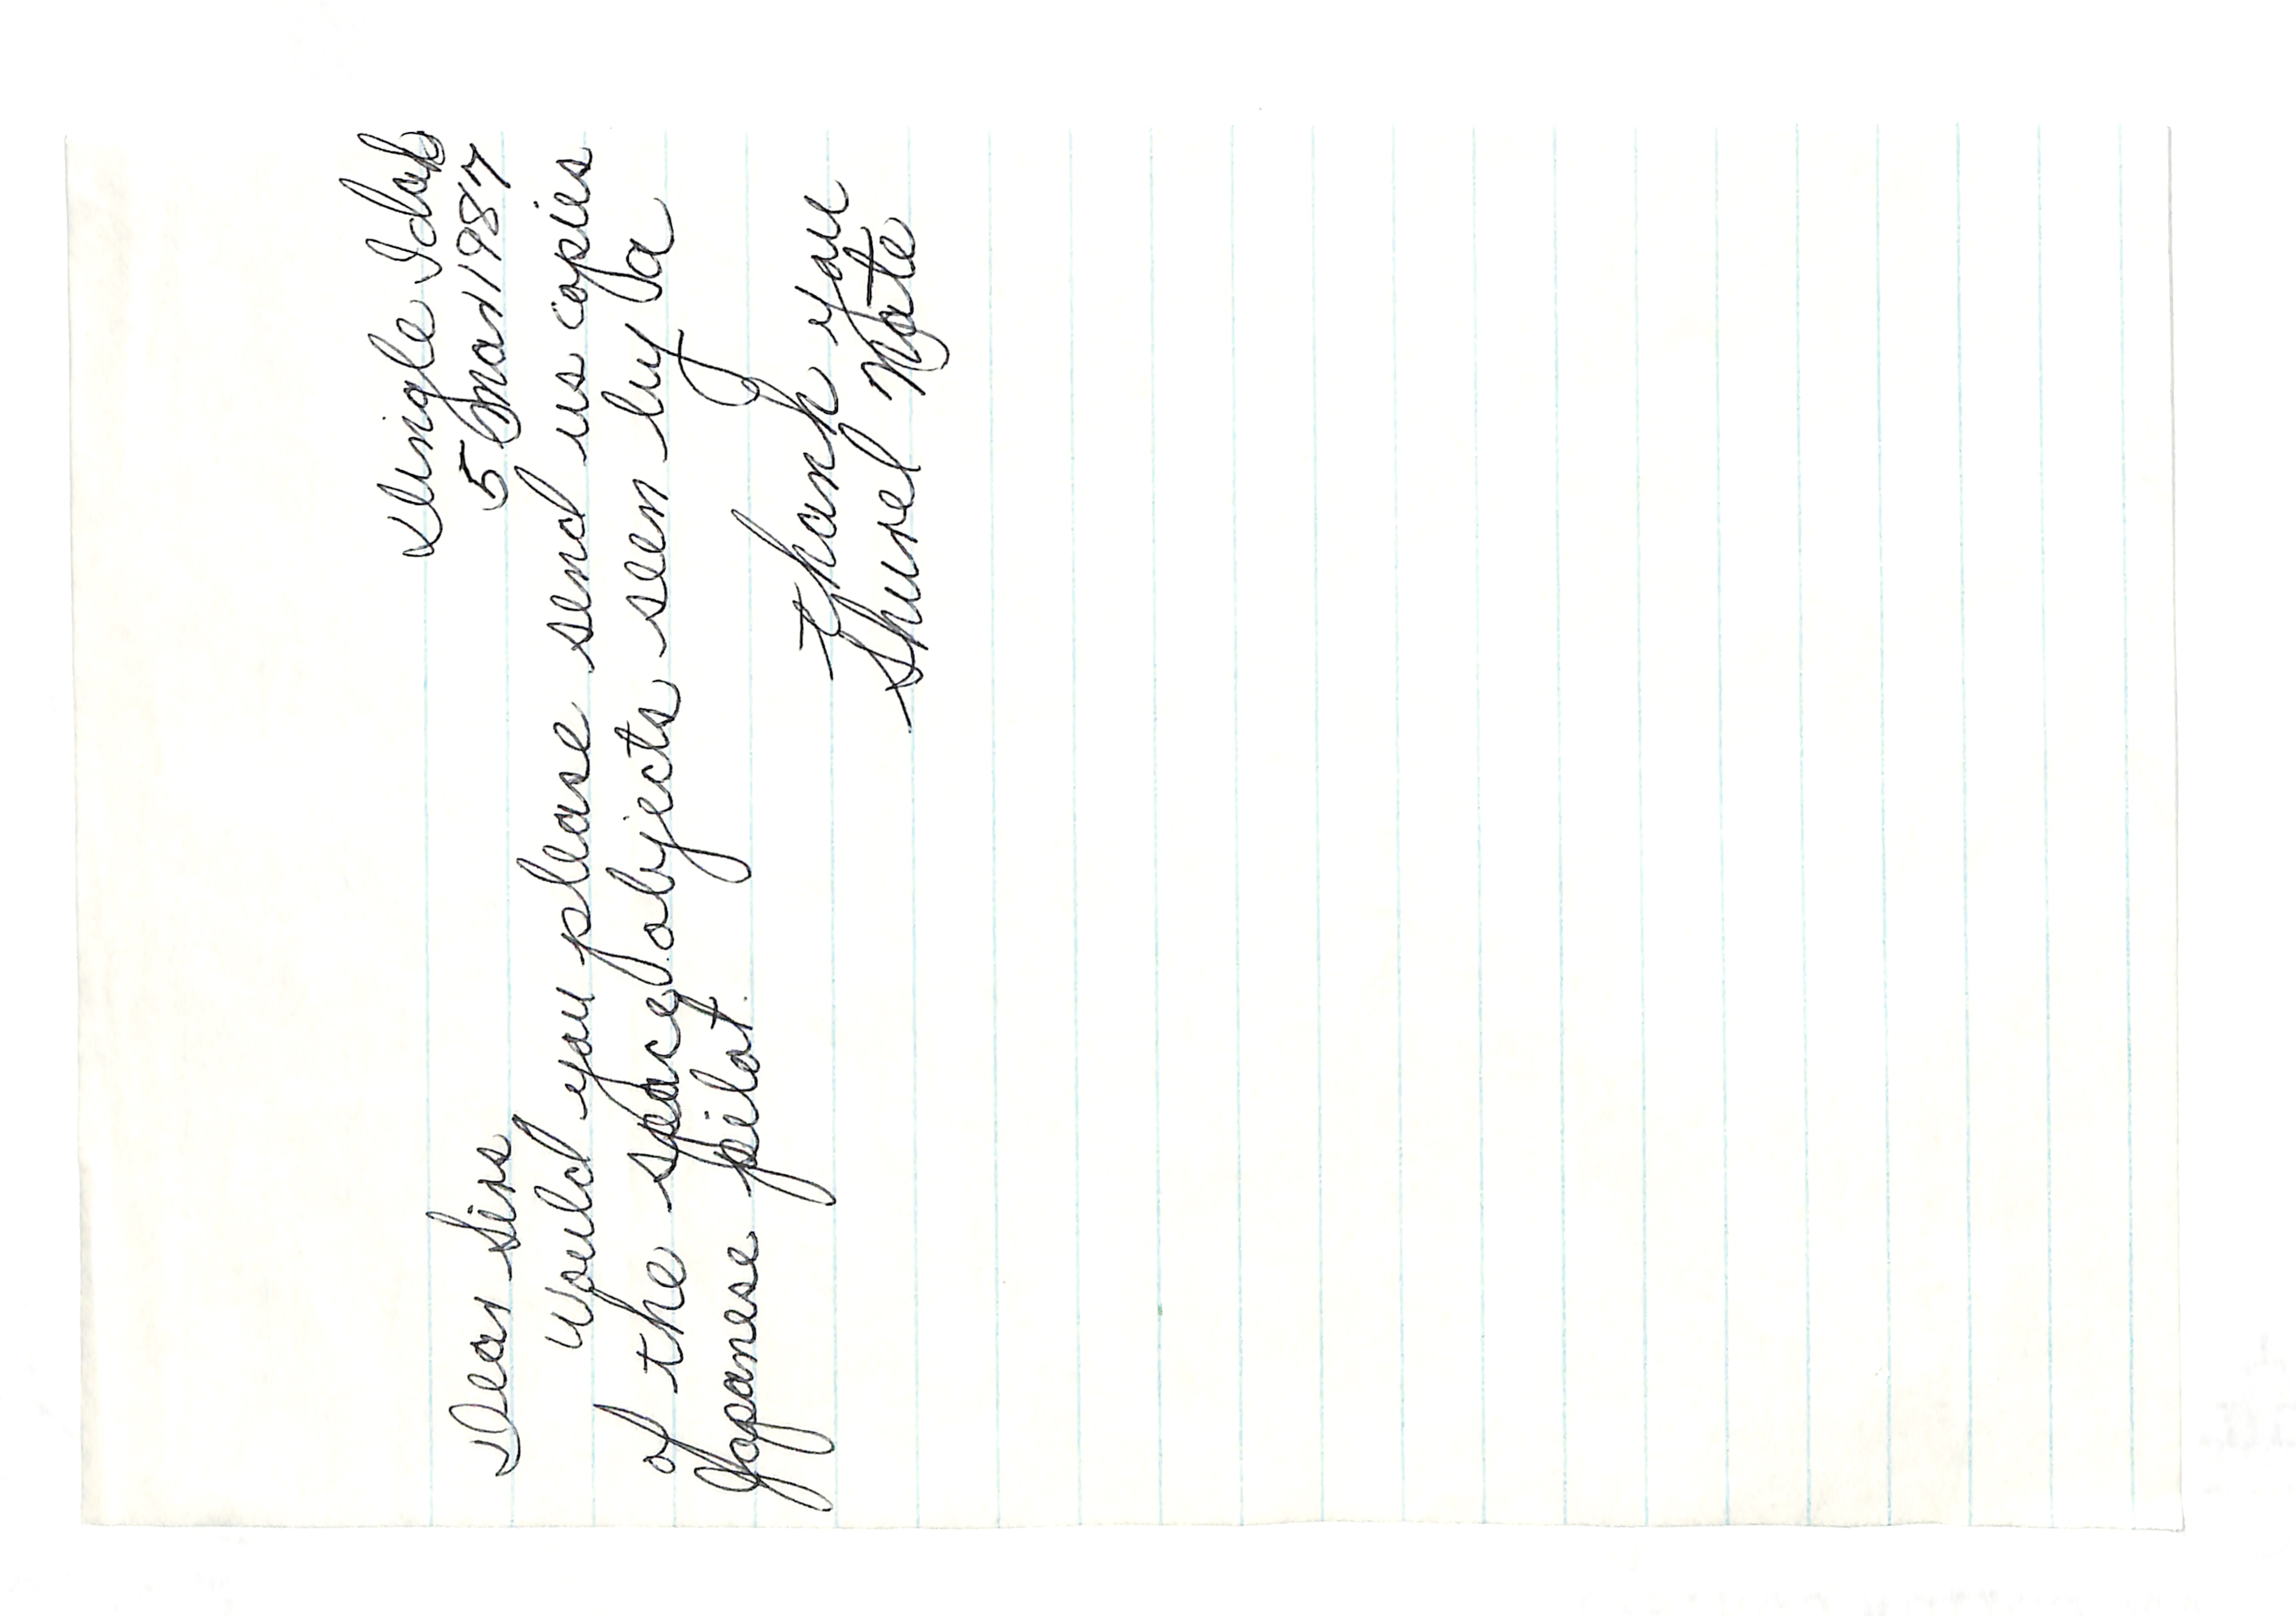 Dingle Idah
5 Mar 1987
Dear Sirs
Would you please send us copies
of the space objects seen by a
Japanese pilot.
thank you
Shurel Nate